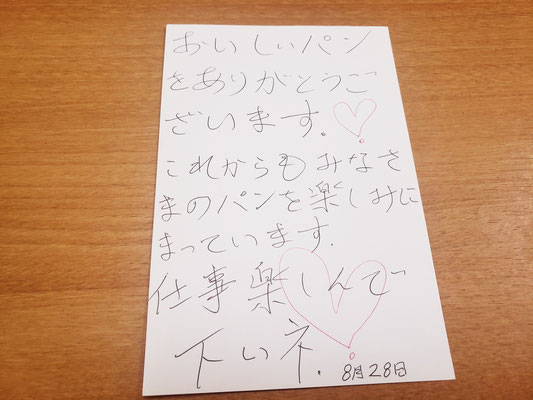 おいしいパン
をありがとうご
ざいます.
これからもみなさ
まのパンを楽しみに
まっています.
仕事楽しんで
下いネ.
8月28日